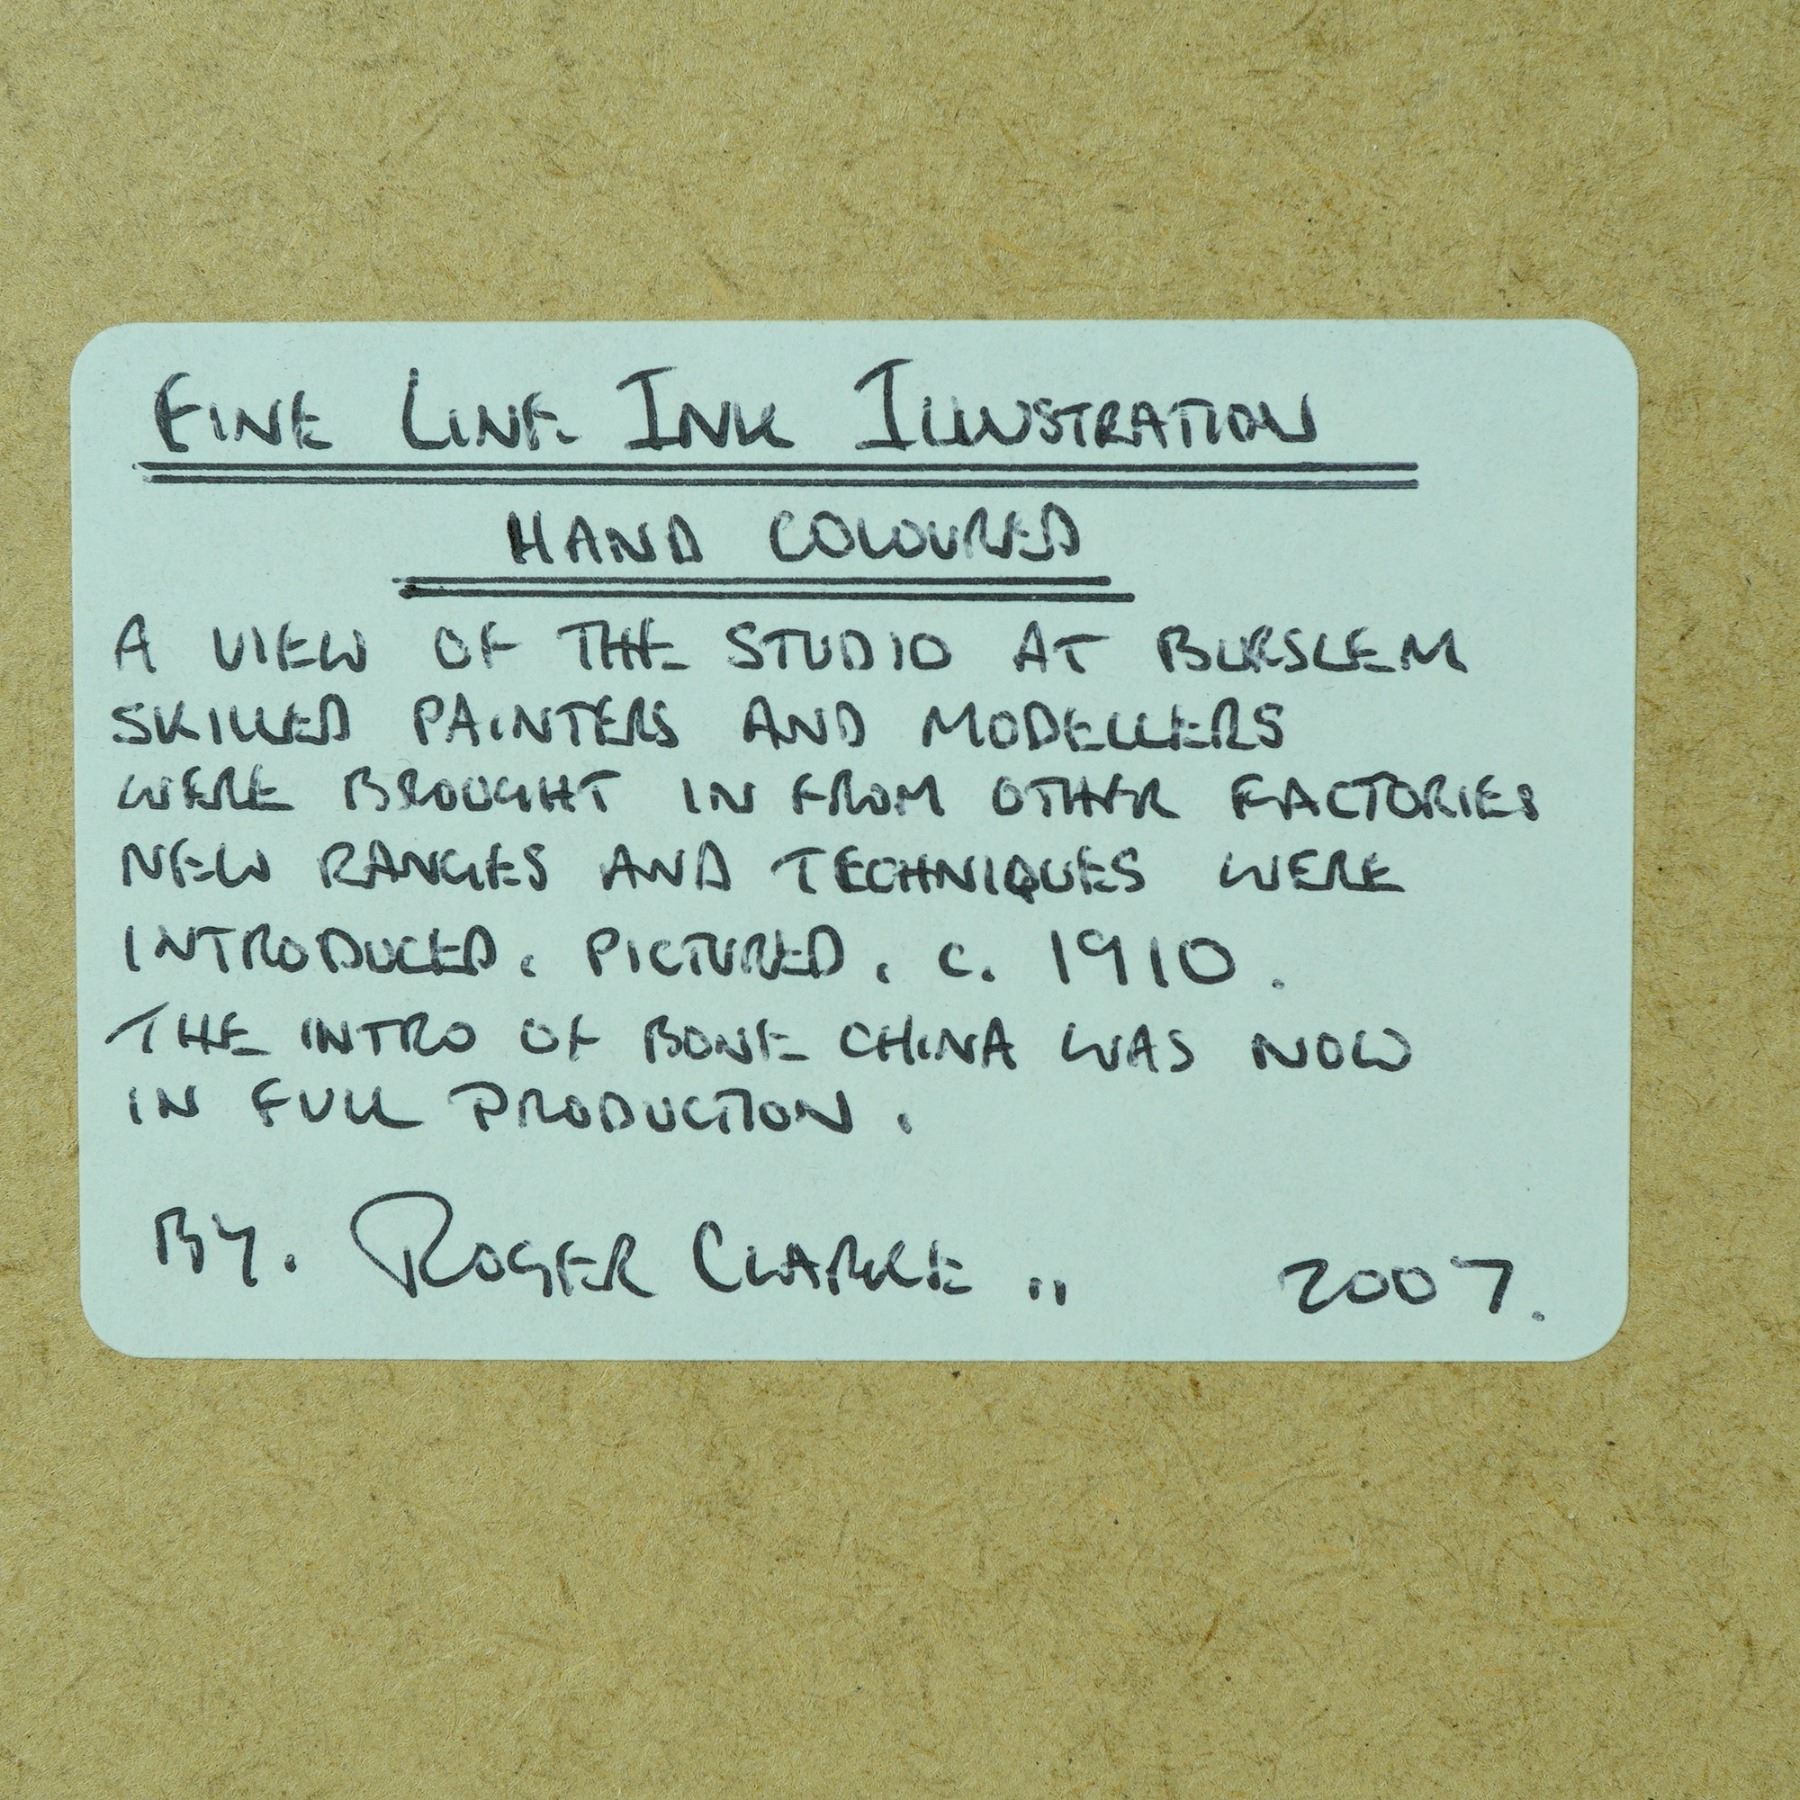 FINE LINE INK ILLUSTRATION
HAND COLOURED
A VIEW OF THE STUDIO AT BURSLEM
SKILLED PAINTERS AND MODELLERS
WERE BROUGHT IN FROM OTHER FACTORIES
NEW RANGES AND TECHNIQUES WERE
INTRODUCED. PICTURED. C. 1910.
THE INTRO OF BONE CHINA WAS NOW
IN FULL PRODUCTION.
BY. ROGER CLARKE .. 2007.